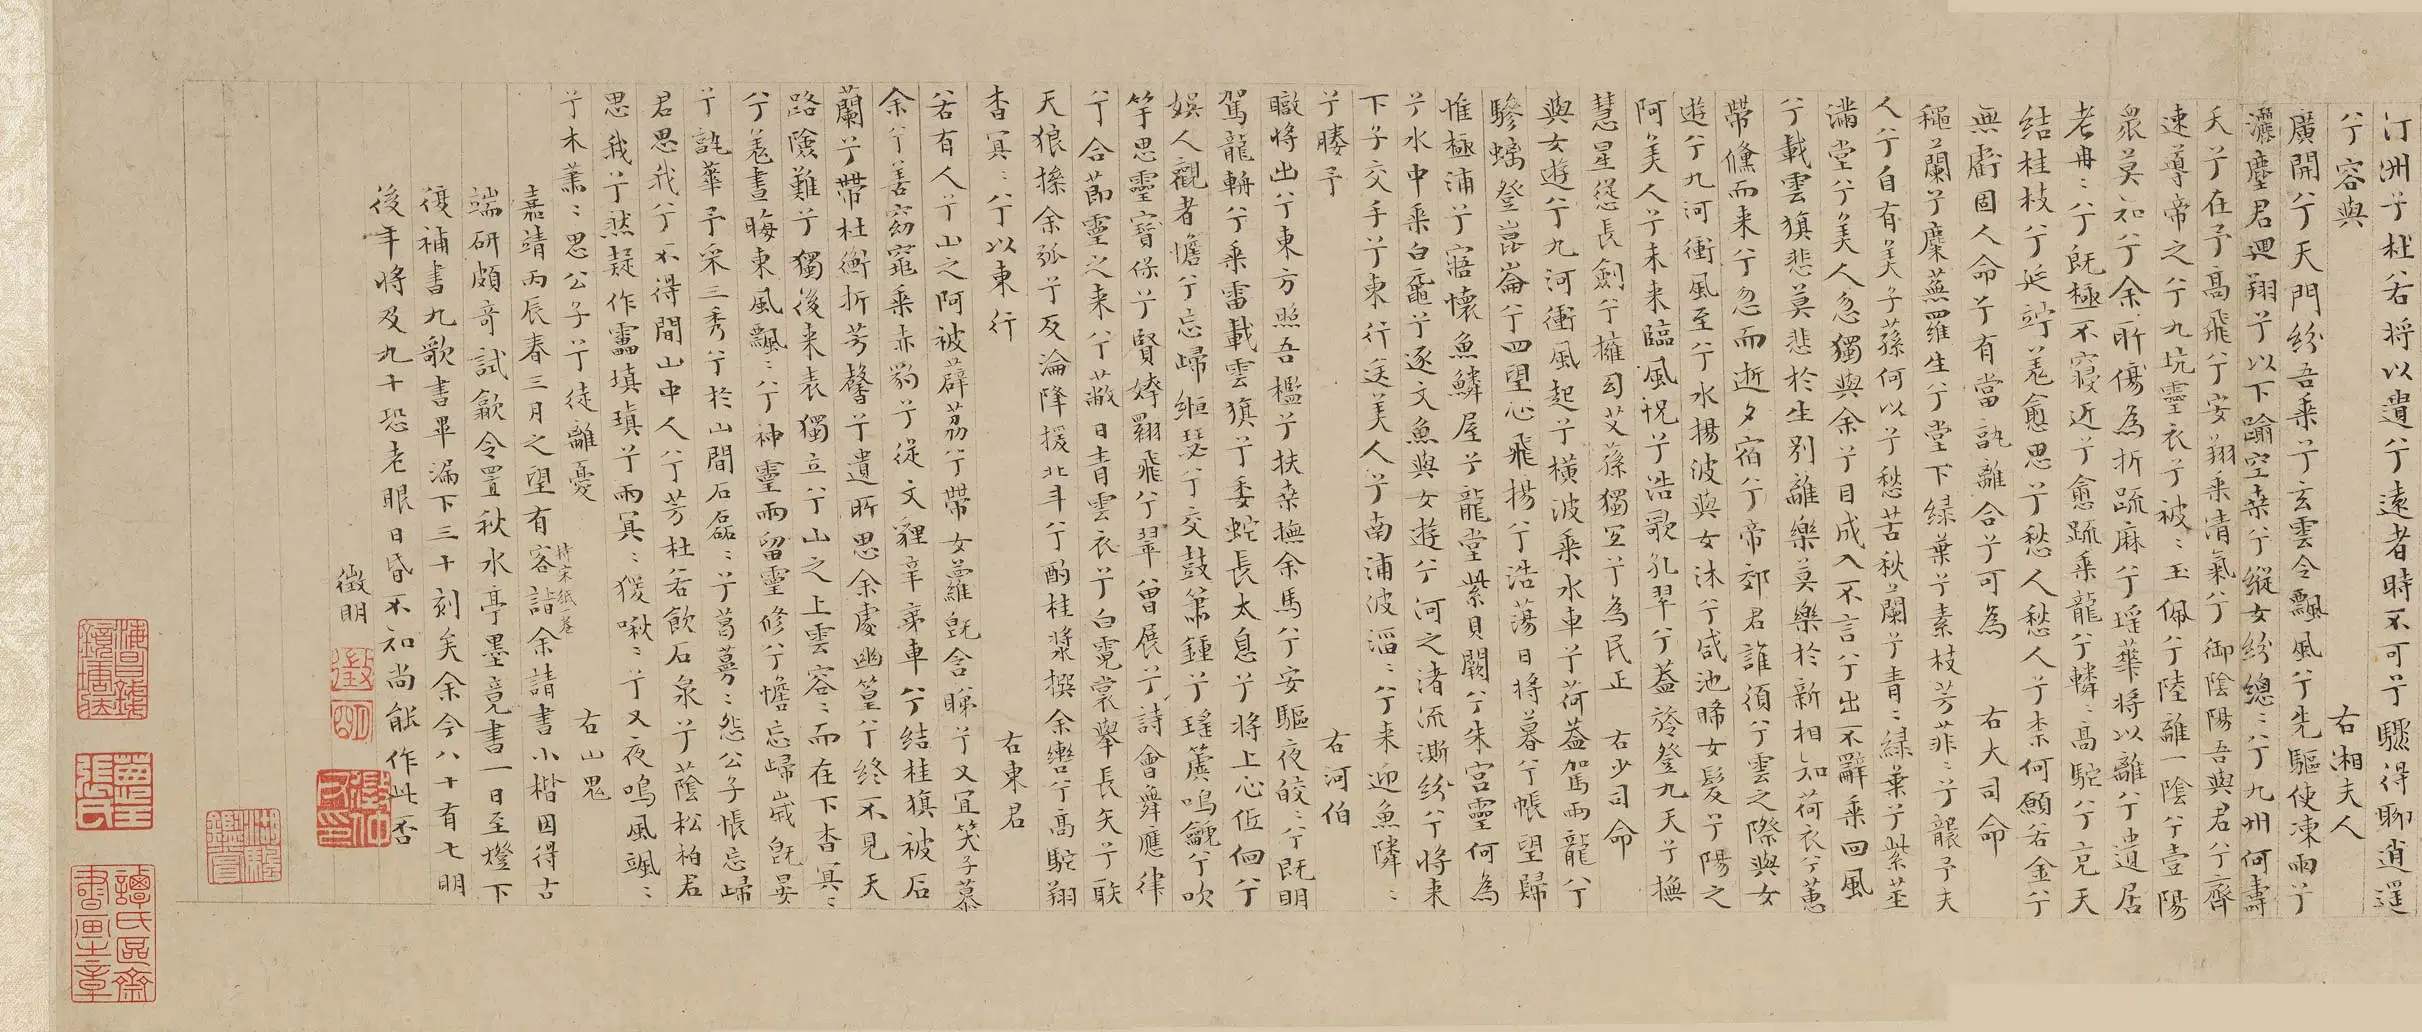 汀洲兮杜若将以遺兮遠者時不可兮驟得聊逍遥
兮容與　右湘夫人
廣開兮天門紛吾乘兮玄雲令飄風兮先驅使凍雨兮
灑塵君迴翔兮以下踰空桒兮縱女紛總〻兮九州何壽
夭兮在予高飛兮安翔乘清氣兮御陰陽吾與君兮齊
速導帝之兮九坑靈衣兮被〻玉佩兮陸離一陰兮壹陽
衆莫知兮余所傷為折疏麻兮瑤華将以離兮遺居
老冉〻兮既極不寖近兮愈疏乘龍兮轔〻高駝兮冲天
結桂枝兮延竚羌愈思兮愁人愁人兮柰何願若今兮
無虧固人命兮有當孰離合兮可為　右大司命
穐蘭兮麋蕪羅生兮堂下緑葉兮素枝芳菲〻兮襲予夫
人兮自有美子蓀何以兮愁苦秋蘭兮青〻緑葉兮紫莖
滿堂兮美人忽獨與余兮目成入不言兮出不辭乘回風
兮載雲旗悲莫悲於生別離樂莫樂於新相知荷衣兮蕙
帶儵而来兮忽而逝夕宿兮帝郊君誰須兮雲之際與女
遊兮九河衝風至兮水揚波與女沐兮咸池晞女髮兮陽之
阿美人兮未来臨風怳兮浩歌孔翠兮蓋旍登九天兮撫
慧星慫長劍兮擁幼艾蓀獨宜兮為民正　右少司命
與女遊兮九河衝風起兮横波乘水車兮荷蓋駕兩龍兮
驂螭登崑崙兮四望心飛揚兮浩蕩日将暮兮悵望歸
惟極浦兮寤懷魚鱗屋兮龍堂紫貝闕兮朱宫靈何為
兮水中乘白黿兮逐文魚與女遊兮河之渚流澌紛兮将来
下子交手兮東行送美人兮南浦波滔〻兮来迎魚隣〻
兮媵予　右河伯
暾将出兮東方照吾檻兮扶桒撫余馬兮安驅夜皎〻兮既明
駕龍輈兮乘雷載雲旗兮委蛇長太息兮将上心低佪兮
娱人觀者憺兮忘歸緪瑟兮交鼓箫鍾兮瑤簴鳴鷈兮吹
竽思靈寳保兮賢姱翾飛兮翠曾展兮詩會舞應律
兮合莭靈之来兮蔽日青雲衣兮白霓裳舉長矢兮䠶
天狼操余弧兮反淪降援北斗兮酌桂漿撰余轡兮高駝翔
杳冥〻兮以東行　右東君
若有人兮山之阿被薜荔兮帶女蘿既含睇兮又宜笑子慕
余兮善窈窕乘赤豹兮從文貍辛夷車兮結桂旗被石
蘭兮帶杜衡折芳馨兮遺所思余處幽篁兮終不見天
路險難兮獨後来表獨立兮山之上雲容〻而在下杳冥〻
兮羌晝晦東風飄〻兮神靈雨留靈修兮憺忘歸歲既晏
兮孰華予采三秀兮於山間石磊〻兮葛蔓〻怨公子悵忘歸
君思我兮不得閒山中人兮芳杜若飲石泉兮蔭松柏君
思我兮然疑作靁瑱瑱兮雨冥〻猨啾〻兮又夜鳴風颯〻
兮木蕭〻思公子兮徒離憂　右山鬼
嘉靖丙辰春三月之望有客持宋紙一巻詣余請書小楷因得古
端研頗奇試歙令置秋水亭墨竟書一日至燈下
復補書九歌書畢漏下三十刻矣余今八十有七明
後年将及九十恐老眼日昏不知尚能作此否
徵明
徵
明